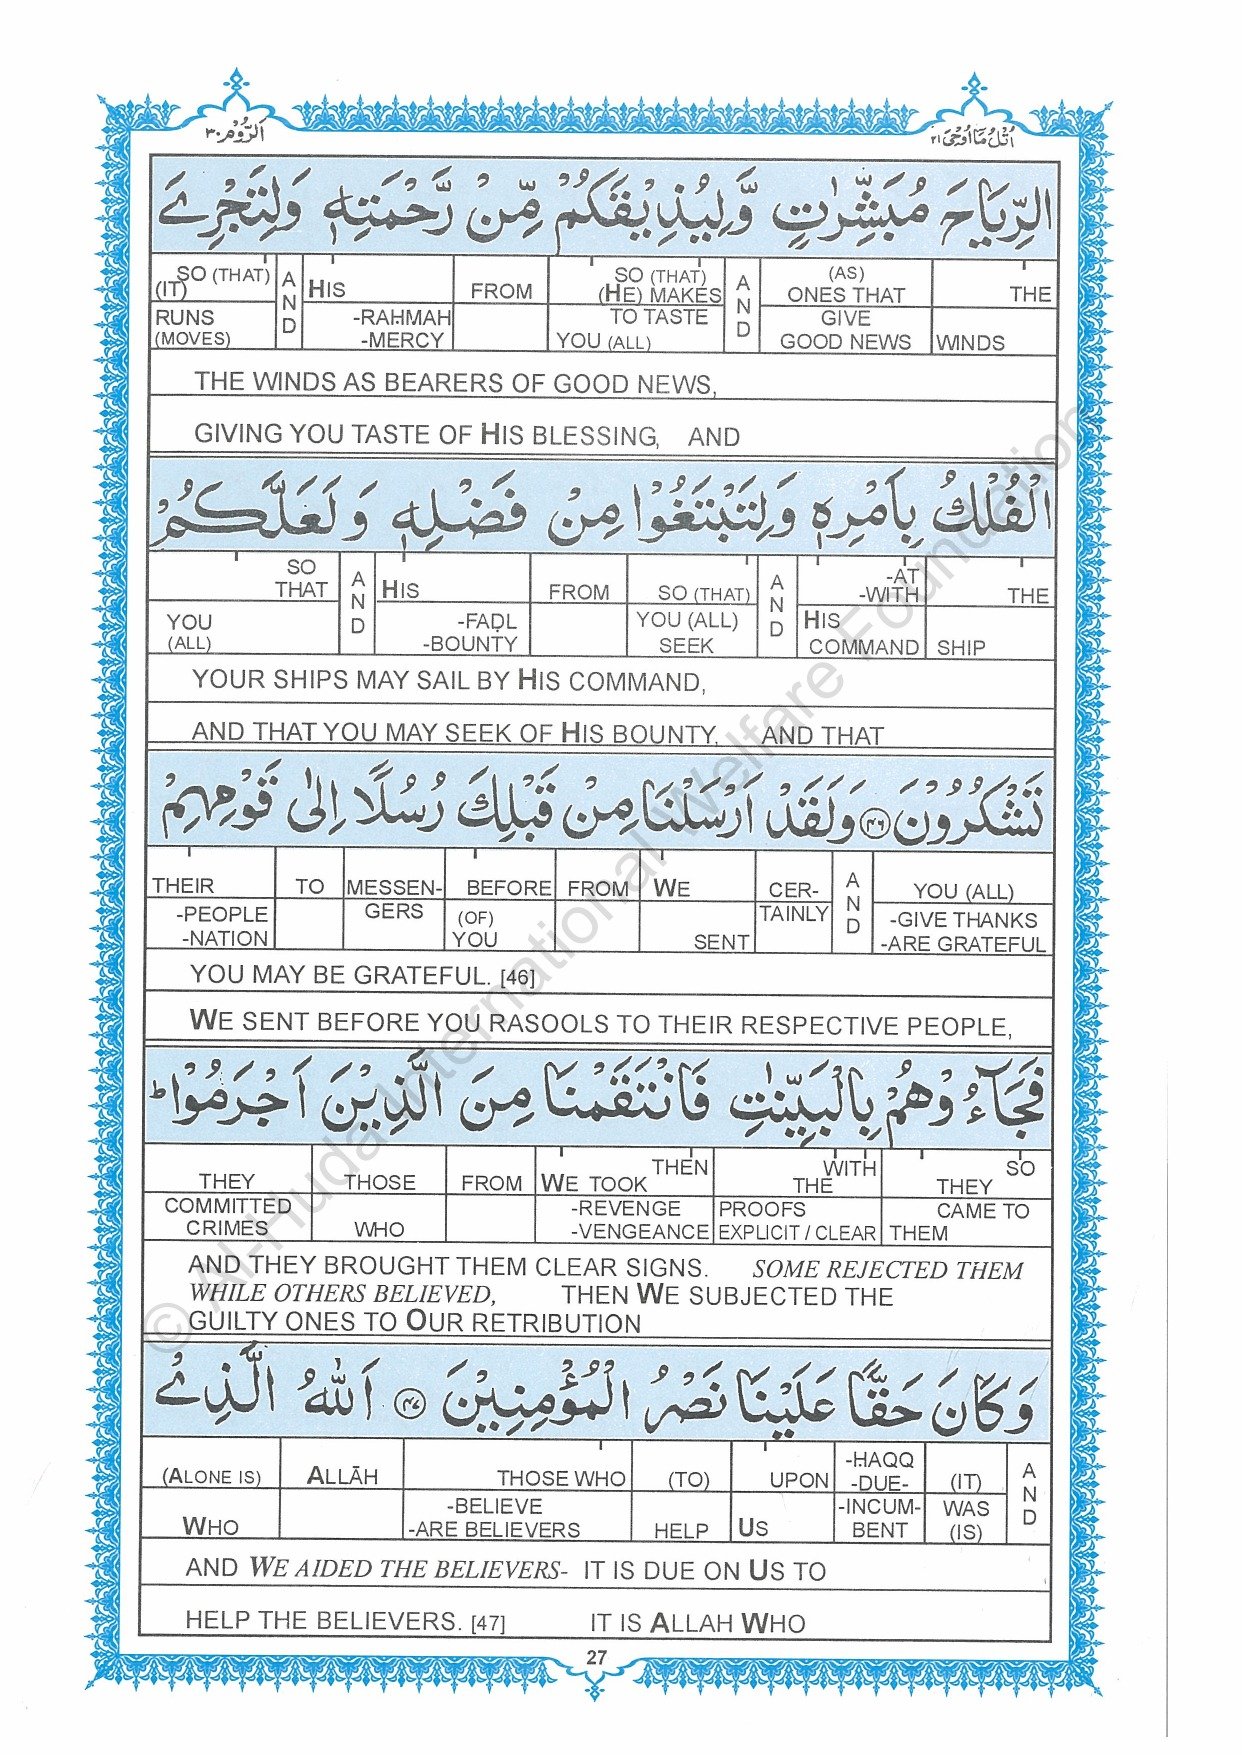 اَلرُّوْمُ ٣٠
اُتْلُ مَا اُوْحِیَ ٢١
الرِّيَاحَ مُبَشِّرٰتٍ وَّلِيُذِيْقَكُمْ مِّنْ رَّحْمَتِهٖ وَلِتَجْرِيَ
SO (THAT) (IT) AND HIS FROM SO (THAT) (HE) MAKES AND (AS) ONES THAT THE
RUNS (MOVES) -RAHMAH -MERCY TO TASTE YOU (ALL) GIVE GOOD NEWS WINDS
THE WINDS AS BEARERS OF GOOD NEWS,
GIVING YOU TASTE OF HIS BLESSING, AND
الْفُلْكُ بِاَمْرِهٖ وَلِتَبْتَغُوْا مِنْ فَضْلِهٖ وَلَعَلَّكُمْ
SO THAT AND HIS FROM SO (THAT) AND -AT -WITH THE
YOU (ALL) -FAḌL -BOUNTY YOU (ALL) SEEK HIS COMMAND SHIP
YOUR SHIPS MAY SAIL BY HIS COMMAND,
AND THAT YOU MAY SEEK OF HIS BOUNTY, AND THAT
تَشْكُرُوْنَ ﴿٤٦﴾ وَلَقَدْ اَرْسَلْنَا مِنْ قَبْلِكَ رُسُلًا اِلٰى قَوْمِهِمْ
THEIR TO MESSEN- BEFORE FROM WE CER- AND YOU (ALL)
-PEOPLE -NATION GERS (OF) YOU SENT TAINLY -GIVE THANKS -ARE GRATEFUL
YOU MAY BE GRATEFUL. [46]
WE SENT BEFORE YOU RASOOLS TO THEIR RESPECTIVE PEOPLE,
فَجَآءُوْهُمْ بِالْبَيِّنٰتِ فَانْتَقَمْنَا مِنَ الَّذِيْنَ اَجْرَمُوْا ؕ
THEY THOSE FROM THEN WE TOOK WITH THE SO THEY
COMMITTED CRIMES WHO -REVENGE -VENGEANCE PROOFS EXPLICIT / CLEAR CAME TO THEM
AND THEY BROUGHT THEM CLEAR SIGNS. SOME REJECTED THEM
WHILE OTHERS BELIEVED, THEN WE SUBJECTED THE
GUILTY ONES TO OUR RETRIBUTION
وَكَانَ حَقًّا عَلَيْنَا نَصْرُ الْمُؤْمِنِيْنَ ﴿٤٧﴾ اَللّٰهُ الَّذِيْ
(ALONE IS) ALLĀH THOSE WHO (TO) UPON -HAQQ -DUE- (IT) AND
WHO -BELIEVE -ARE BELIEVERS HELP US -INCUM- BENT WAS (IS)
AND WE AIDED THE BELIEVERS- IT IS DUE ON US TO
HELP THE BELIEVERS. [47] IT IS ALLAH WHO
27
© Al-Huda International Welfare Foundation